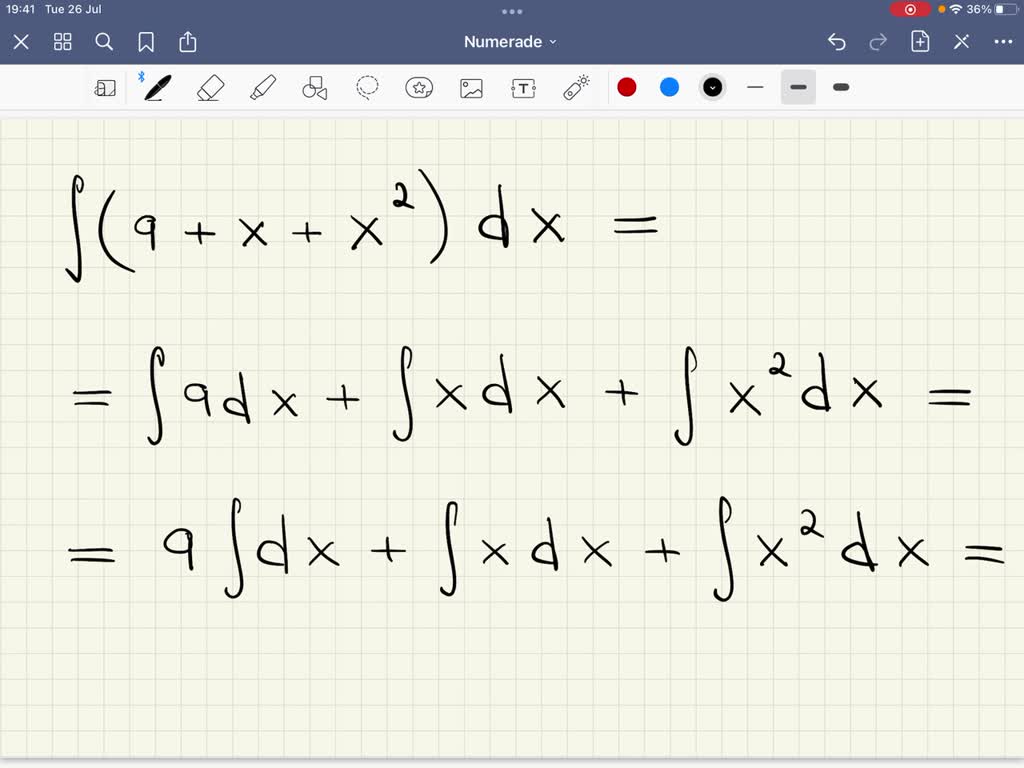 19:41 Tue 26 Jul 36%
Numerade
T
∫(9 + x + x²) dx =
= ∫9dx + ∫xdx + ∫x²dx =
= 9∫dx + ∫xdx + ∫x²dx =